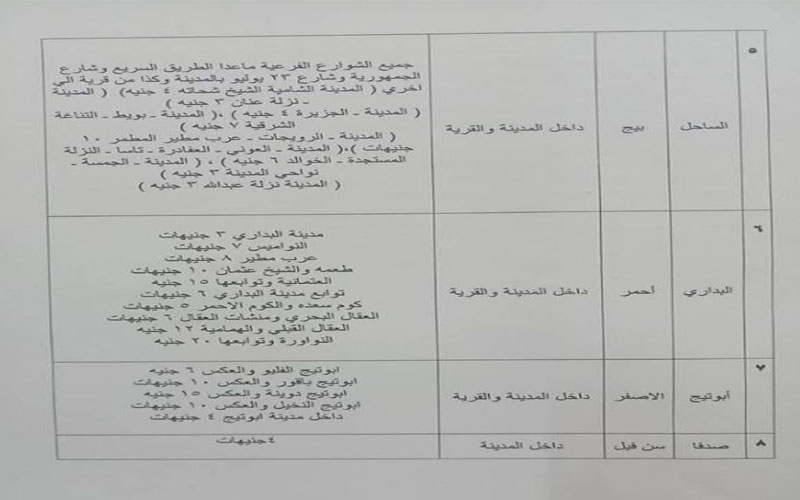 ٥
الساحل
بيج
داخل المدينة والقرية
جميع الشوارع الفرعية ماعدا الطريق السريع وشارع
الجمهورية وشارع ٢٣ يوليو بالمدينة وكذا من قرية الي
اخري ( المدينة الشامية الشيخ شحاته ٤ جنيه) ( المدينة
ـ نزلة عنان ٣ جنيه )
( المدينة ـ الجزيرة ٤ جنيه ) ،( المدينة ـ بويط ـ التناغة
الشرقية ٧ جنيه )
( المدينة ـ الرويجات ـ عرب مطير المطمر ١٠
جنيهات )،( المدينة ـ العوني ـ الغفادرة ـ تاسا ـ النزلة
المستجدة ـ الخوالد ٦ جنيه ) ، ( المدينة ـ الجمسة ـ
نواحي المدينة ٣ جنيه )
( المدينة نزلة عبدالله ٣ جنيه )
٦
البداري
أحمر
داخل المدينة والقرية
مدينة البداري ٣ جنيهات
النواميس ٧ جنيهات
عرب مطير ٨ جنيهات
طعمه والشيخ عثمان ١٠ جنيهات
العتمانية وتوابعها ١٥ جنيه
توابع مدينة البداري ٦ جنيهات
كوم سعده والكوم الاحمر ٥ جنيهات
العقال البحري ومنشات العقال ٦ جنيهات
العقال القبلي والهمامية ١٢ جنيه
النواورة وتوابعها ٢٠ جنيه
٧
أبوتيج
الاصفر
داخل المدينة والقرية
ابوتيج الفليو والعكس ٦ جنيه
ابوتيج باقور والعكس ١٠ جنيهات
ابوتيج دوينة والعكس ١٥ جنيه
ابوتيج النخيل والعكس ١٠ جنيهات
داخل مدينة ابوتيج ٤ جنيهات
٨
صدفا
سن فيل
داخل المدينة
٤جنيهات